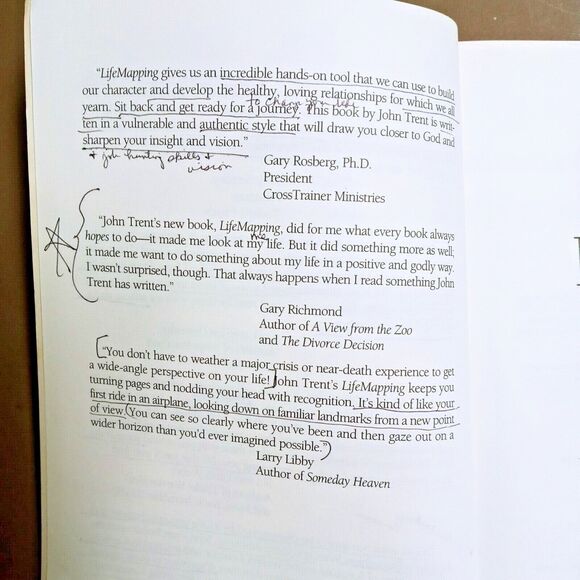 "LifeMapping gives us an incredible hands-on tool that we can use to build
our character and develop the healthy, loving relationships for which we all
to change your life
yearn. Sit back and get ready for a journey. This book by John Trent is writ-
ten in a vulnerable and authentic style that will draw you closer to God and
sharpen your insight and vision."
+ job hunting skills +
vision
Gary Rosberg, Ph.D.
President
CrossTrainer Ministries
"John Trent's new book, LifeMapping, did for me what every book always
hopes to do—it made me look at my life. But it did something more as well;
it made me want to do something about my life in a positive and godly way.
I wasn't surprised, though. That always happens when I read something John
Trent has written."
Gary Richmond
Author of A View from the Zoo
and The Divorce Decision
"You don't have to weather a major crisis or near-death experience to get
a wide-angle perspective on your life! John Trent's LifeMapping keeps you
turning pages and nodding your head with recognition. It's kind of like your
first ride in an airplane, looking down on familiar landmarks from a new point
of view. You can see so clearly where you've been and then gaze out on a
wider horizon than you'd ever imagined possible."
Larry Libby
Author of Someday Heaven